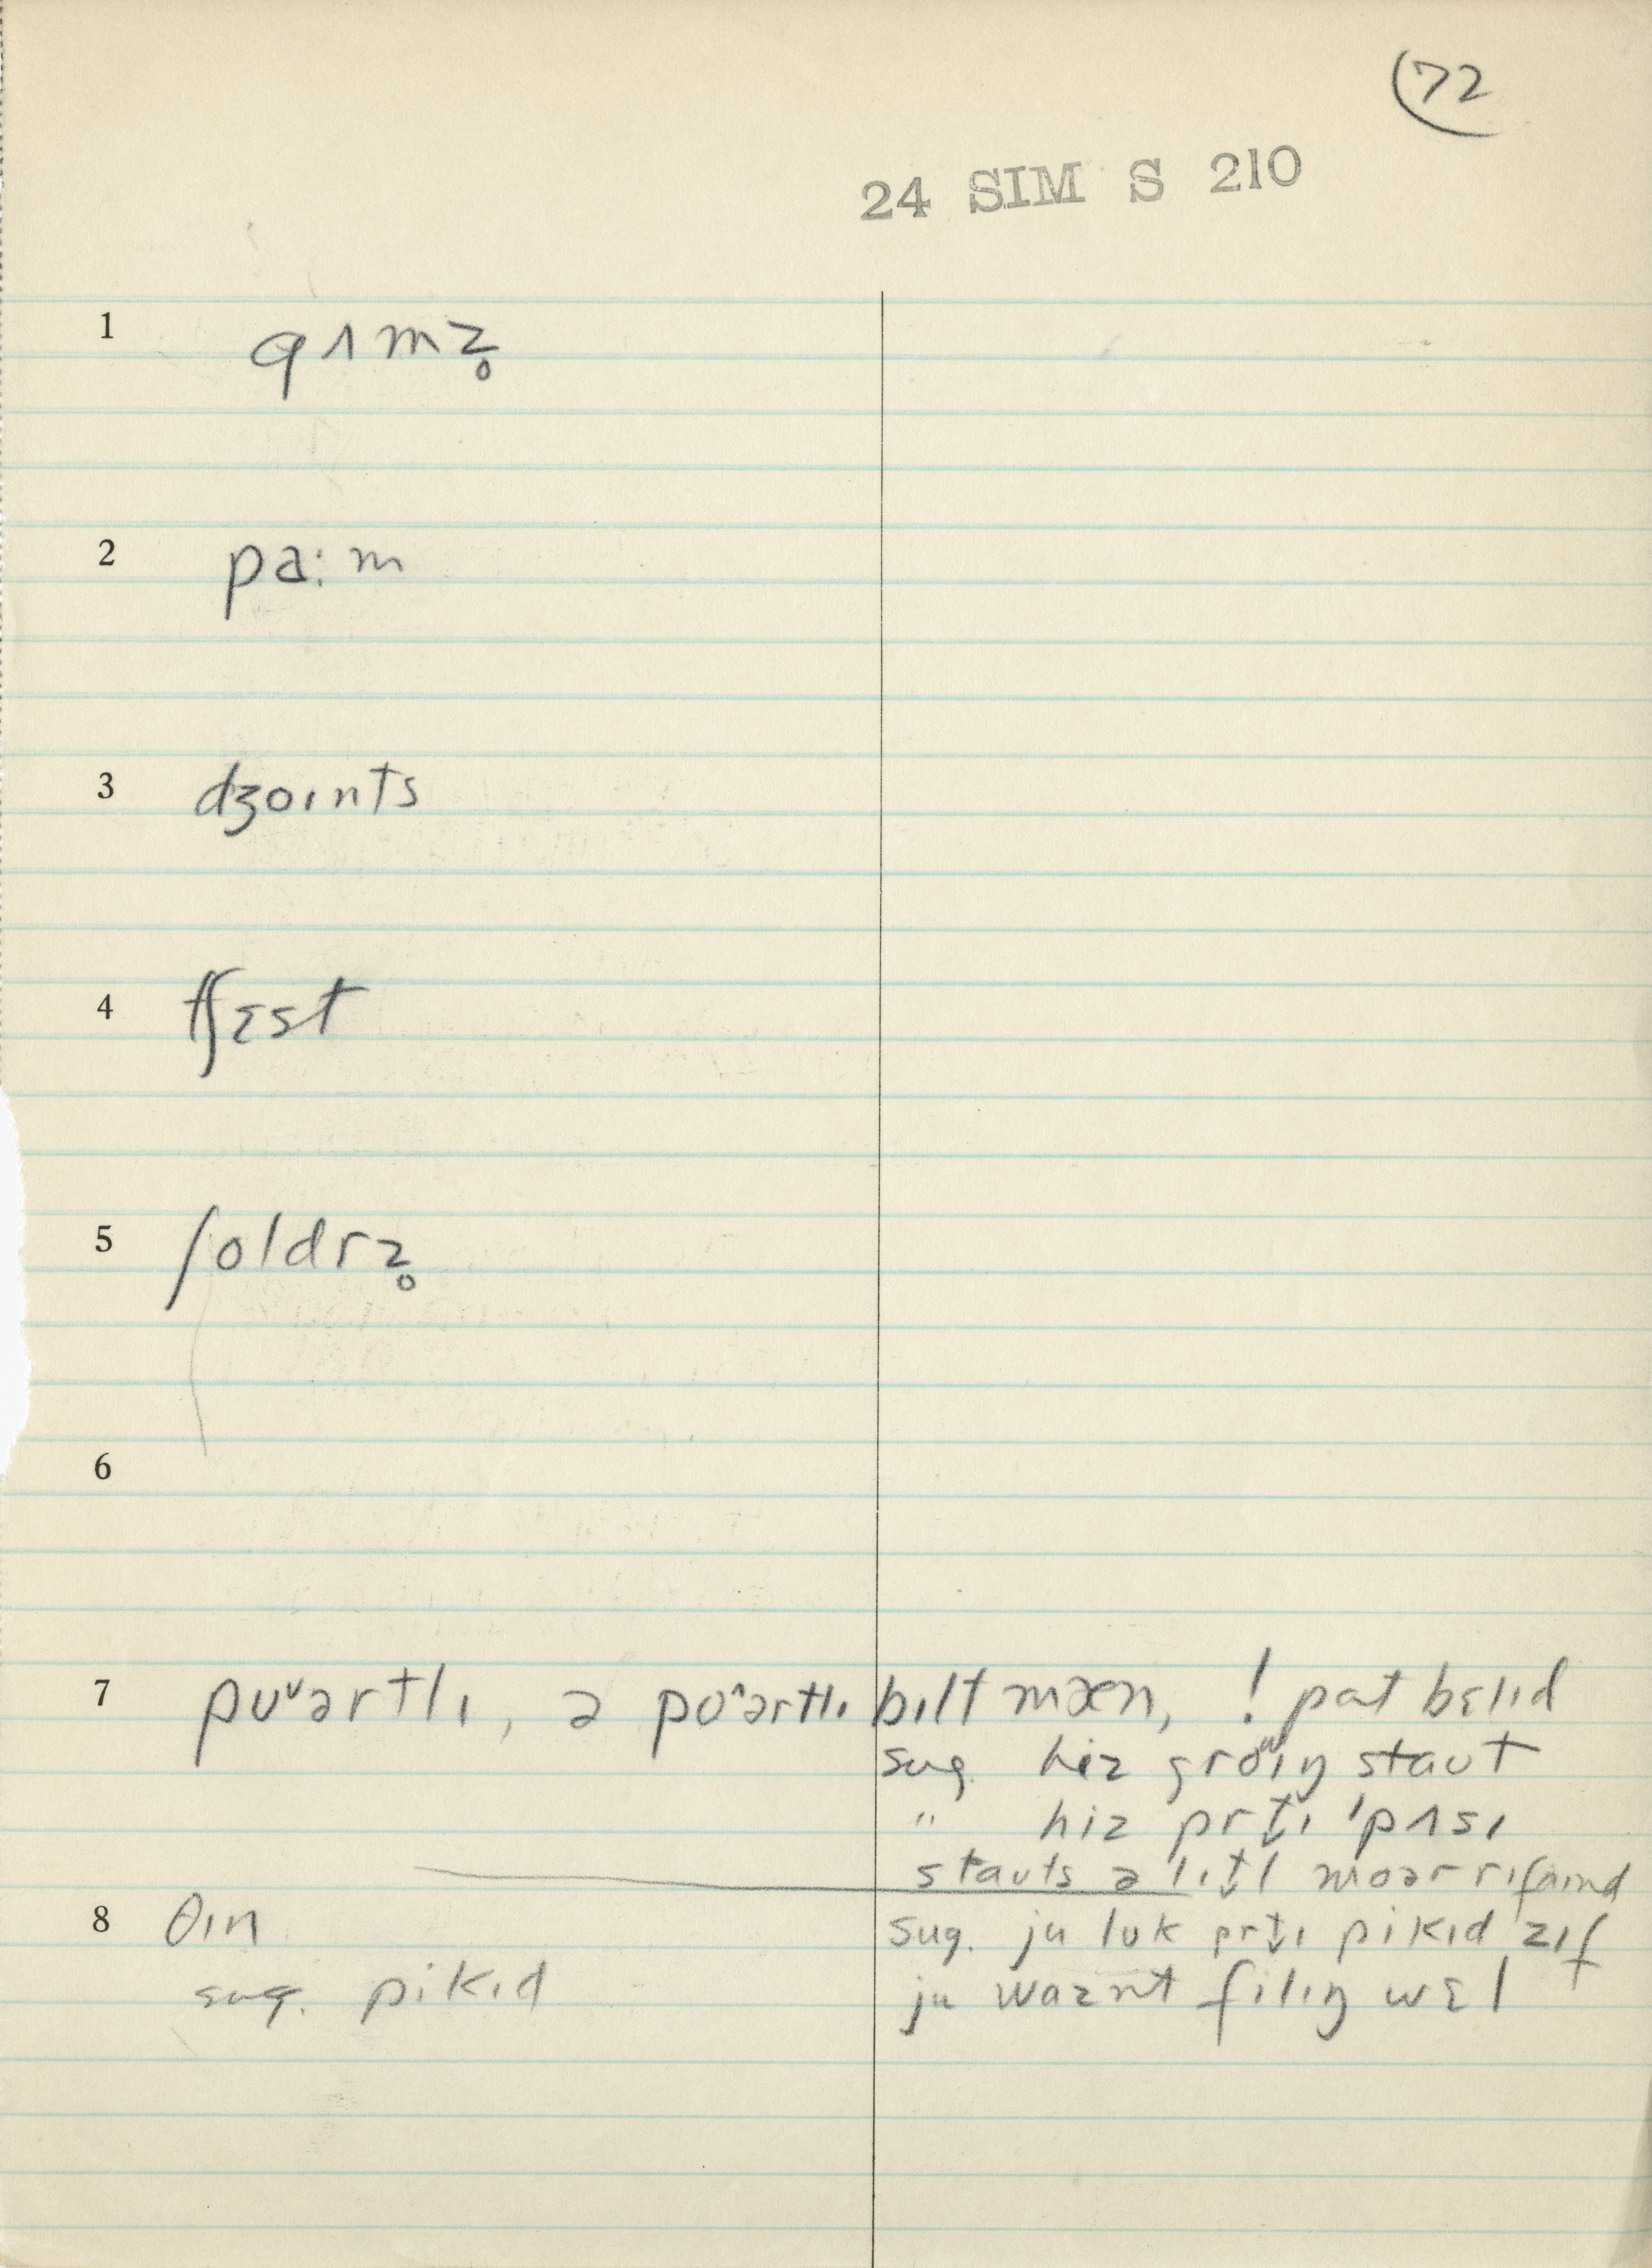 72
24 SIM S 210
1 gʌmz̥
2 pa:m
3 dʒoɪnts
4 tʃɛst
5 ʃoldrz̥
6
7 pʊᵛərtlɪ, ə poˆərtlɪ bɪlt mæn, ! pat bɛlɪd
sug. hiz groʷɪŋ staʊt
" hiz prt̬ɪ 'pʌsɪ
staʊts ə lɪt̬l moər rɪfaɪnd
8 θɪn sug. ju lʊk prt̬ɪ pikɪd zɪf
sug. pikɪd ju waznt filɪŋ wɛl